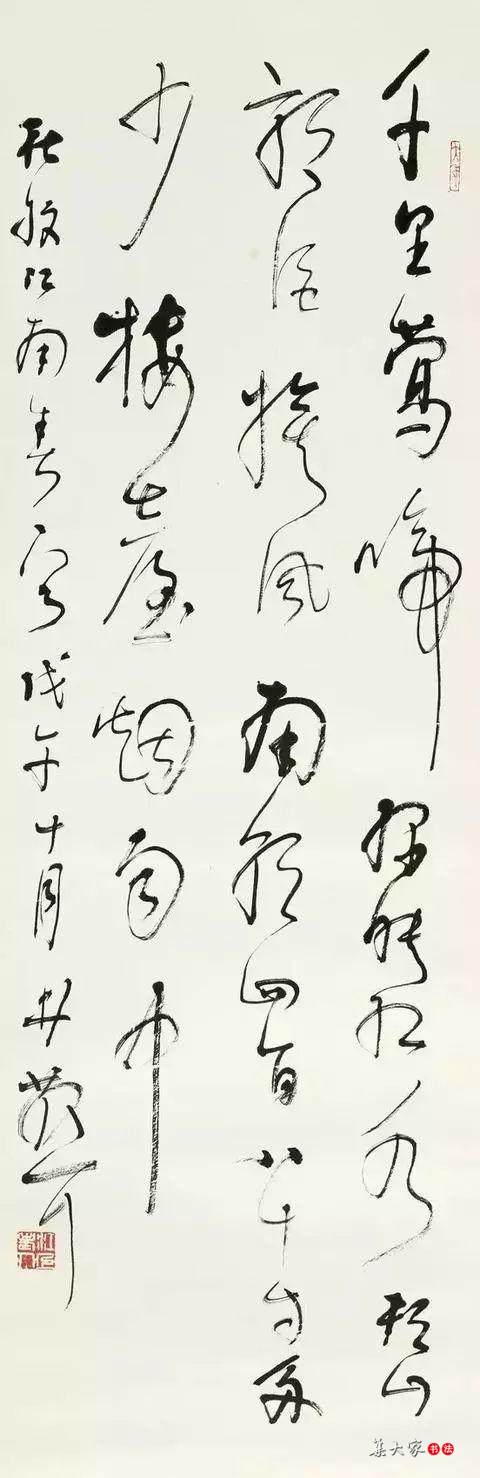 千里鶯啼綠映紅水村山
郭酒旗風南朝四百八十寺多
少樓臺烟雨中
杜牧江南春 戊午十月林散耳
集大家 书法